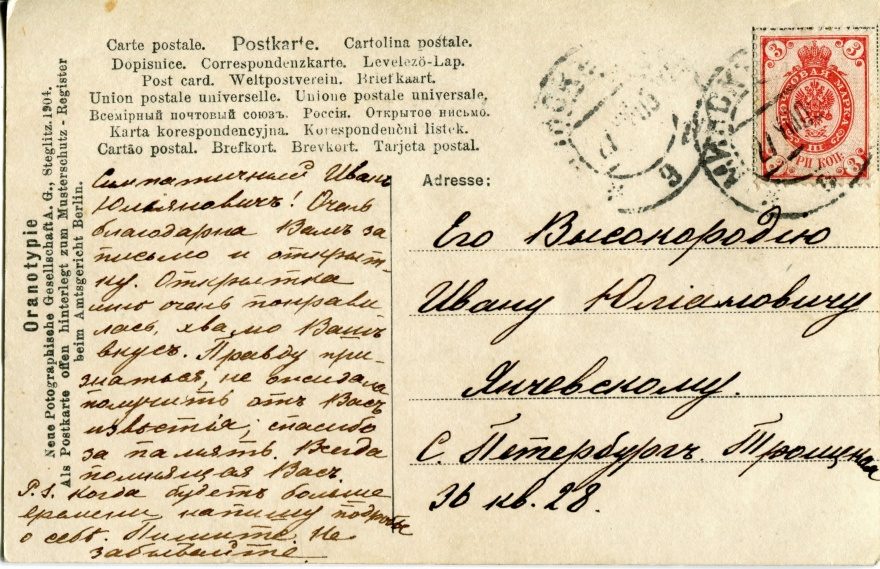 Carte postale. Postkarte. Cartolina postale.
Dopisnice. Correspondenzkarte. Levelező-Lap.
Post card. Weltpostverein. Briefkaart.
Union postale universelle. Unione postale universale.
Всемірный почтовый союзъ. Россія. Открытое письмо.
Karta korespondencyjna. Korespondenční listek.
Cartão postal. Brefkort. Brevkort. Tarjeta postal.
Oranotypie
Neue Potographische Gesellschaft A. G., Steglitz. 1904.
Als Postkarte offen hinterlegt zum Musterschutz-Register
beim Amtsgericht Berlin.
Симпатичный Иванъ
Юльяновичъ! Очень
благодарна Вамъ за
письмо и открыт-
ку. Открытка
мнѣ очень понрави
лась, хвалю Вашъ
вкусъ. Правду при-
знаться, не ожидала
получить отъ Васъ
извѣстія; спасибо
за память. Всегда
помнящая Васъ
P.S. Когда будетъ больше
времени, напишу подробнѣе
о себѣ. Пишите. Не
забывайте
Adresse:
Его Высокородію
Ивану Юліановичу
Янчевскому.
С. Петербургъ. Троицкая
36 кв. 28.
3 3
ПОЧТОВАЯ МАРКА
3 ТРИ КОП. 3
МИНСКЪ